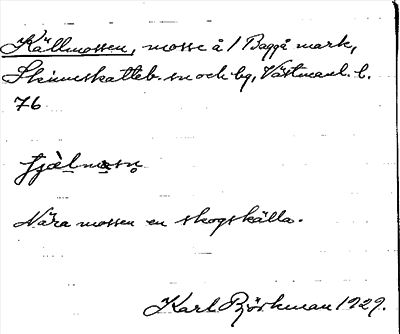 Källmossen, mosse å 1 Baggå mark,
Skinnskatteb. sn och bg, Västmanl. l.
76
Nära mossen en skogskälla.
Karl Björkman 1929.